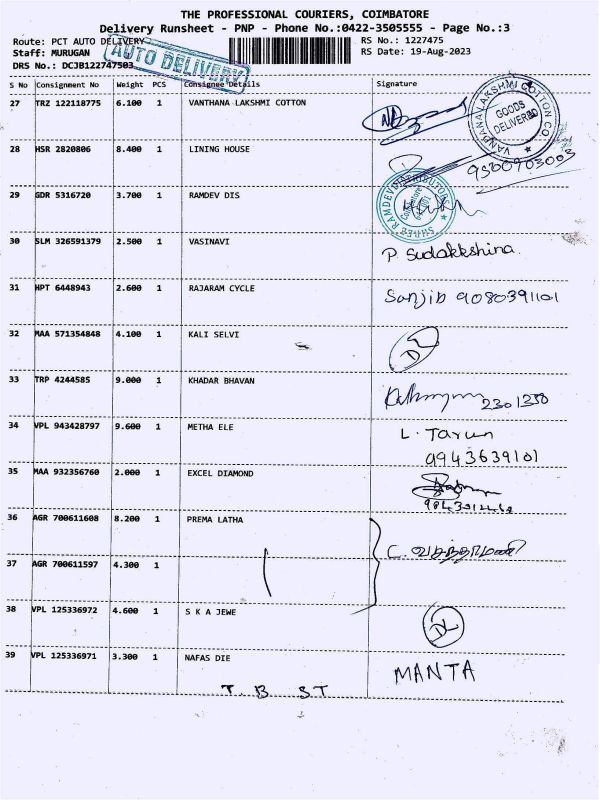 THE PROFESSIONAL COURIERS, COIMBATORE
Delivery Runsheet - PNP - Phone No.:0422-3505555 - Page No.:3
Route: PCT AUTO DELIVERY
RS No.: 1227475
Staff: MURUGAN
RS Date: 19-Aug-2023
DRS No.: DCJB122747503
AUTO DELIVERY
S No Consignment No Weight PCS Consignee Details Signature
27 TRZ 122118775 6.100 1 VANTHANA LAKSHMI COTTON
VANDANA LAKSHMI COTTON CO.
GOODS DELIVERED
28 HSR 2820806 8.400 1 LINING HOUSE
9500903003
29 GDR 5316720 3.700 1 RAMDEV DIS
SHREE RAMDEV DISTRIBUTORS
30 SLM 326591379 2.500 1 VASINAVI P. Sudakkshina.
31 HPT 6448943 2.600 1 RAJARAM CYCLE Sanjib 9080391101
32 MAA 571354848 4.100 1 KALI SELVI
33 TRP 4244585 9.000 1 KHADAR BHAVAN 2301250
34 VPL 943428797 9.600 1 METHA ELE L. Tarun
9943639101
35 MAA 932356760 2.000 1 EXCEL DIAMOND
36 AGR 700611608 8.200 1 PREMA LATHA
C. வசந்தாமணி
37 AGR 700611597 4.300 1
38 VPL 125336972 4.600 1 S K A JEWE
39 VPL 125336971 3.300 1 NAFAS DIE MANTA
T. B ST